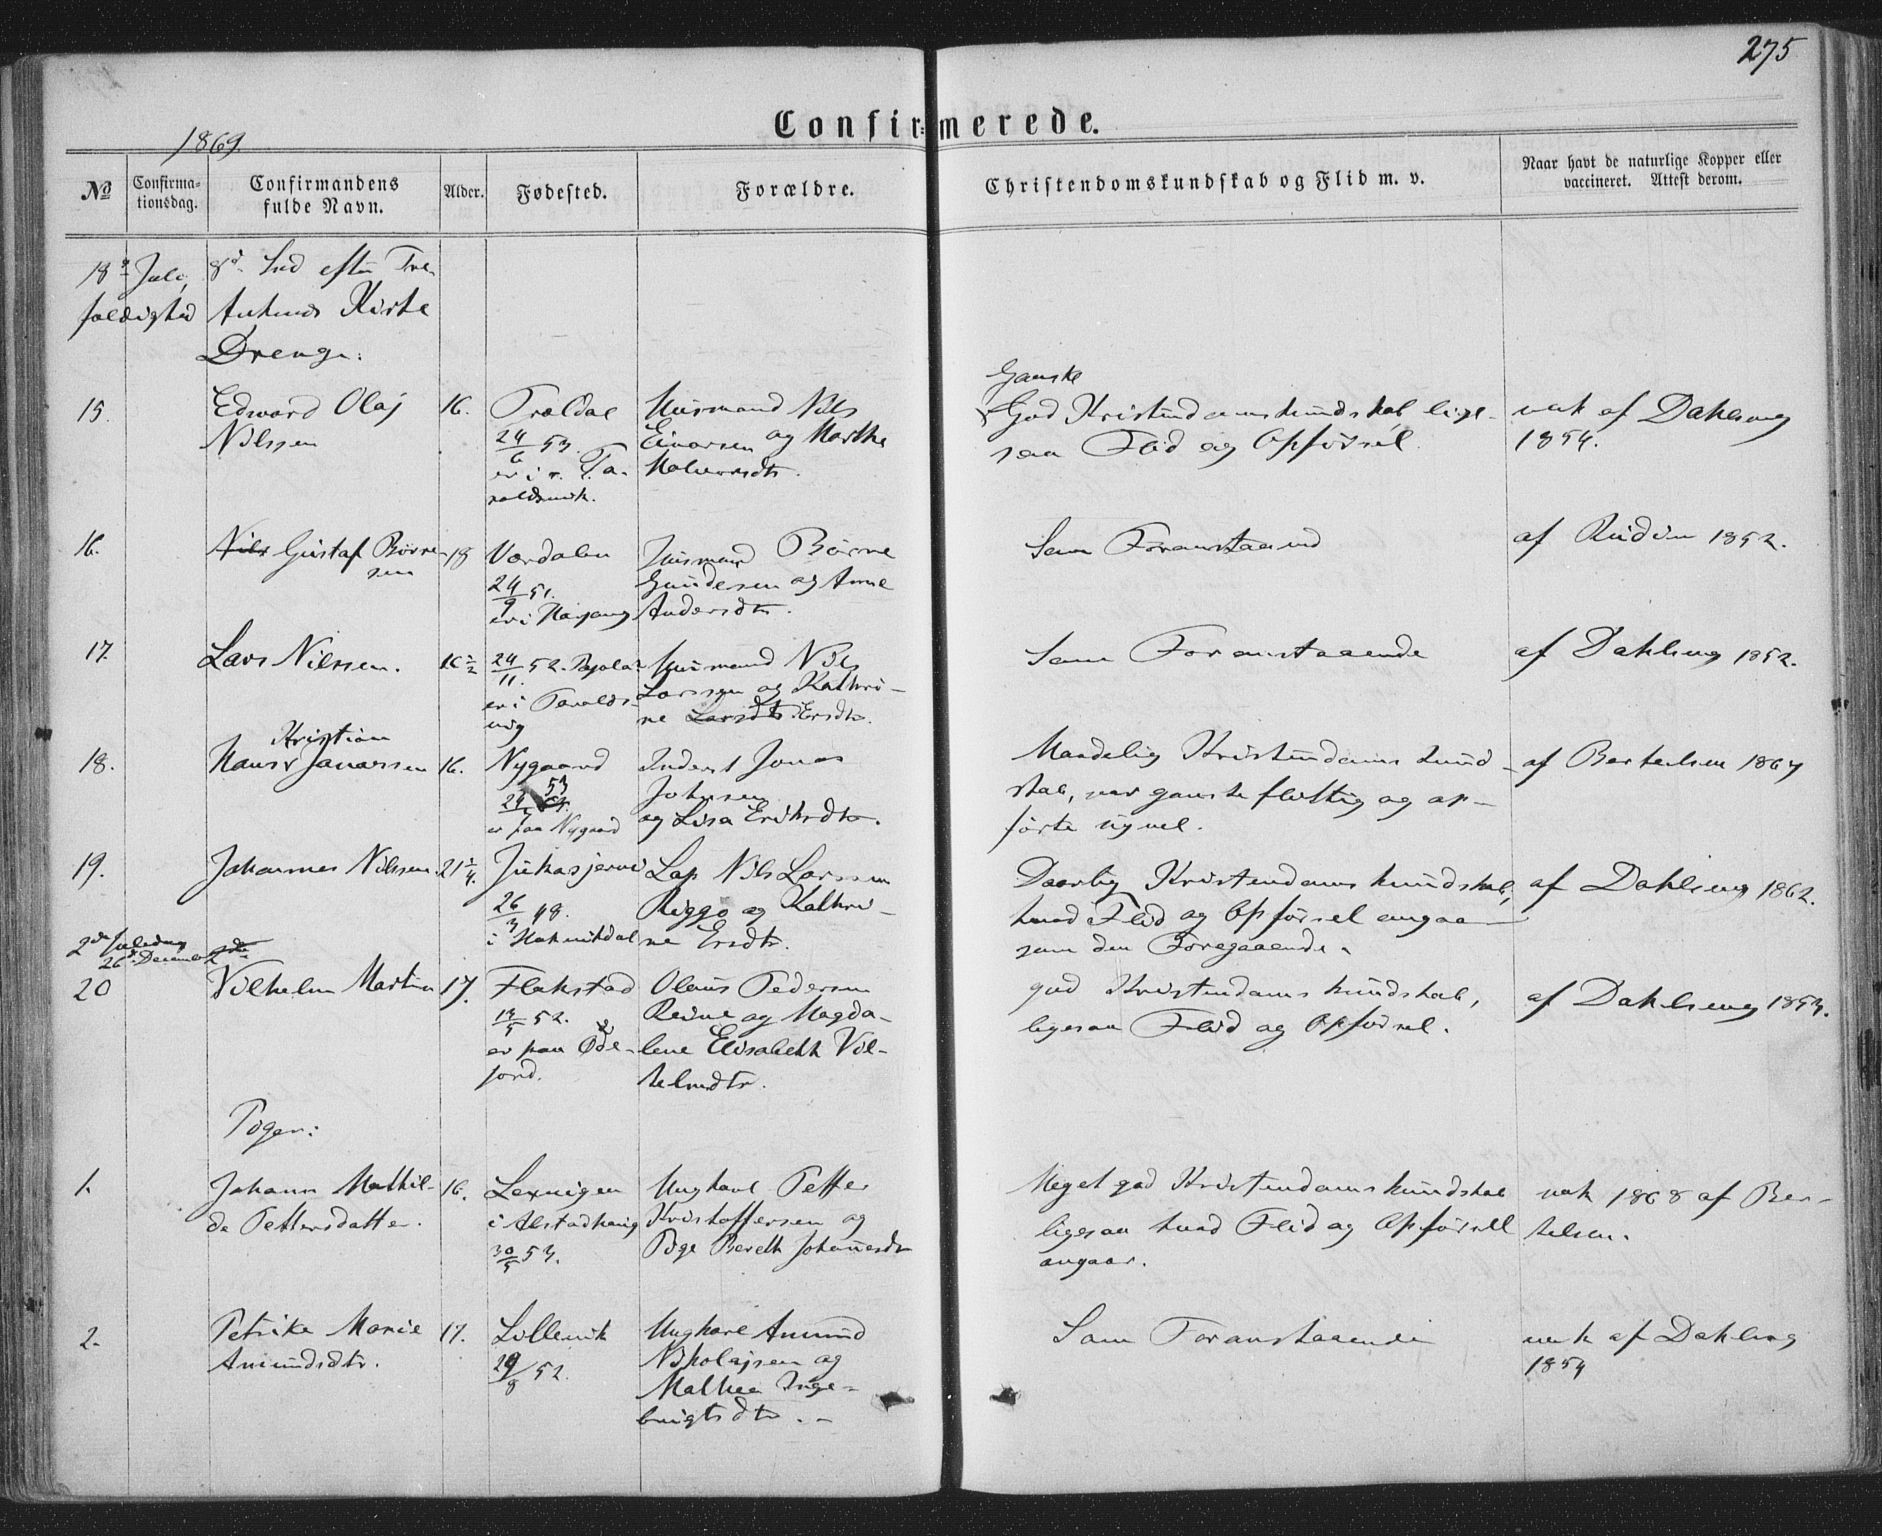 275
Confirmerede.
1869.
No
Confirma-
tionsdag.
Confirmandens
fulde Navn.
Alder.
Fødested.
Forældre.
Christendomskundskab og Flid m. v.
Naar havt de naturlige Kopper eller
vaccineret. Attest derom.
18de Juli, 8de Snd efter Tre-
foldighed Ankenes Kirke
Drenge:
15.
Edward Olaj
Nilssen
16.
Trældal
24/6 53.
er i
Ta-
raldsvik.
Husmand Nils
Einarsen og Marthe
Halvorsdtr.
Ganske
God Kristendomskundskab lige-
saa Flid og Opførsel.
vak af Dahlseng
1854.
16.
Nils Gustaf Børre-
sen
18
Værdalen
24/9 51.
er i Herjang
Husmand Børre
Gundersen og Anne
Andersdtr.
Som Foranstaaend
af Rudin 1852.
17.
Lars Nilssen.
16 1/2
24/11 52.
er i Taralds-
vig
Husmand Nils
Larssen og Kathri-
ne Larsdtr Ersdtr.
Som Foranstaaende
af Dahlseng 1852.
18.
Kristian
Hans Jonassen
16.
Nygaard
53
er paa Nygaard
Inderst Jonas
Johnsen
og Lisa Eriksdtr.
Maadelig Kristendoms Kund-
skab, var ganske flittig og op-
førte sig vel.
af Bertelsen 1867
19.
Johannes Nilssen.
21 1/4.
Jukasjervi
26/3 48.
i Haknikdal
Lap Nils Larssen
Riggo og Kathri-
ne Ersdtr.
Daarlig Kristendomskundskab,
hvad Flid og Opførsel angaa
som den Foregaaende.
af Dahlseng 1862.
2den Juledag
26de December 2den
20
Vilhelm Martin
17.
Flakstad
13/5 52.
er paa Øde-
fjord.
Olaus Pedersen
Reine og Magda-
lene Elisabeth Vil-
helmdtr.
god Kristendomskundskab,
ligesaa Flid og Opførsel.
af Dahlseng 1853.
Piger:
1.
Johanna Mathil-
de Pettersdatter.
16.
i Alstadhaug
30/5 53.
Ungkarl Petter
Kristoffersen og
Pige Bereth Johannesdtr
Meget god Kristendomskundskab
ligesaa hvad Flid og Opførsell
angaar.
vak 1868 af Ber-
telsen.
2.
Petrike Marie
Amundsdtr.
17.
Lillevik
29/8 52.
Ungkarl Amund
Nikolajsen og
Mathea Inge-
brigtsdtr. -
Som Foranstaaende
vak af Dahlseng
1854